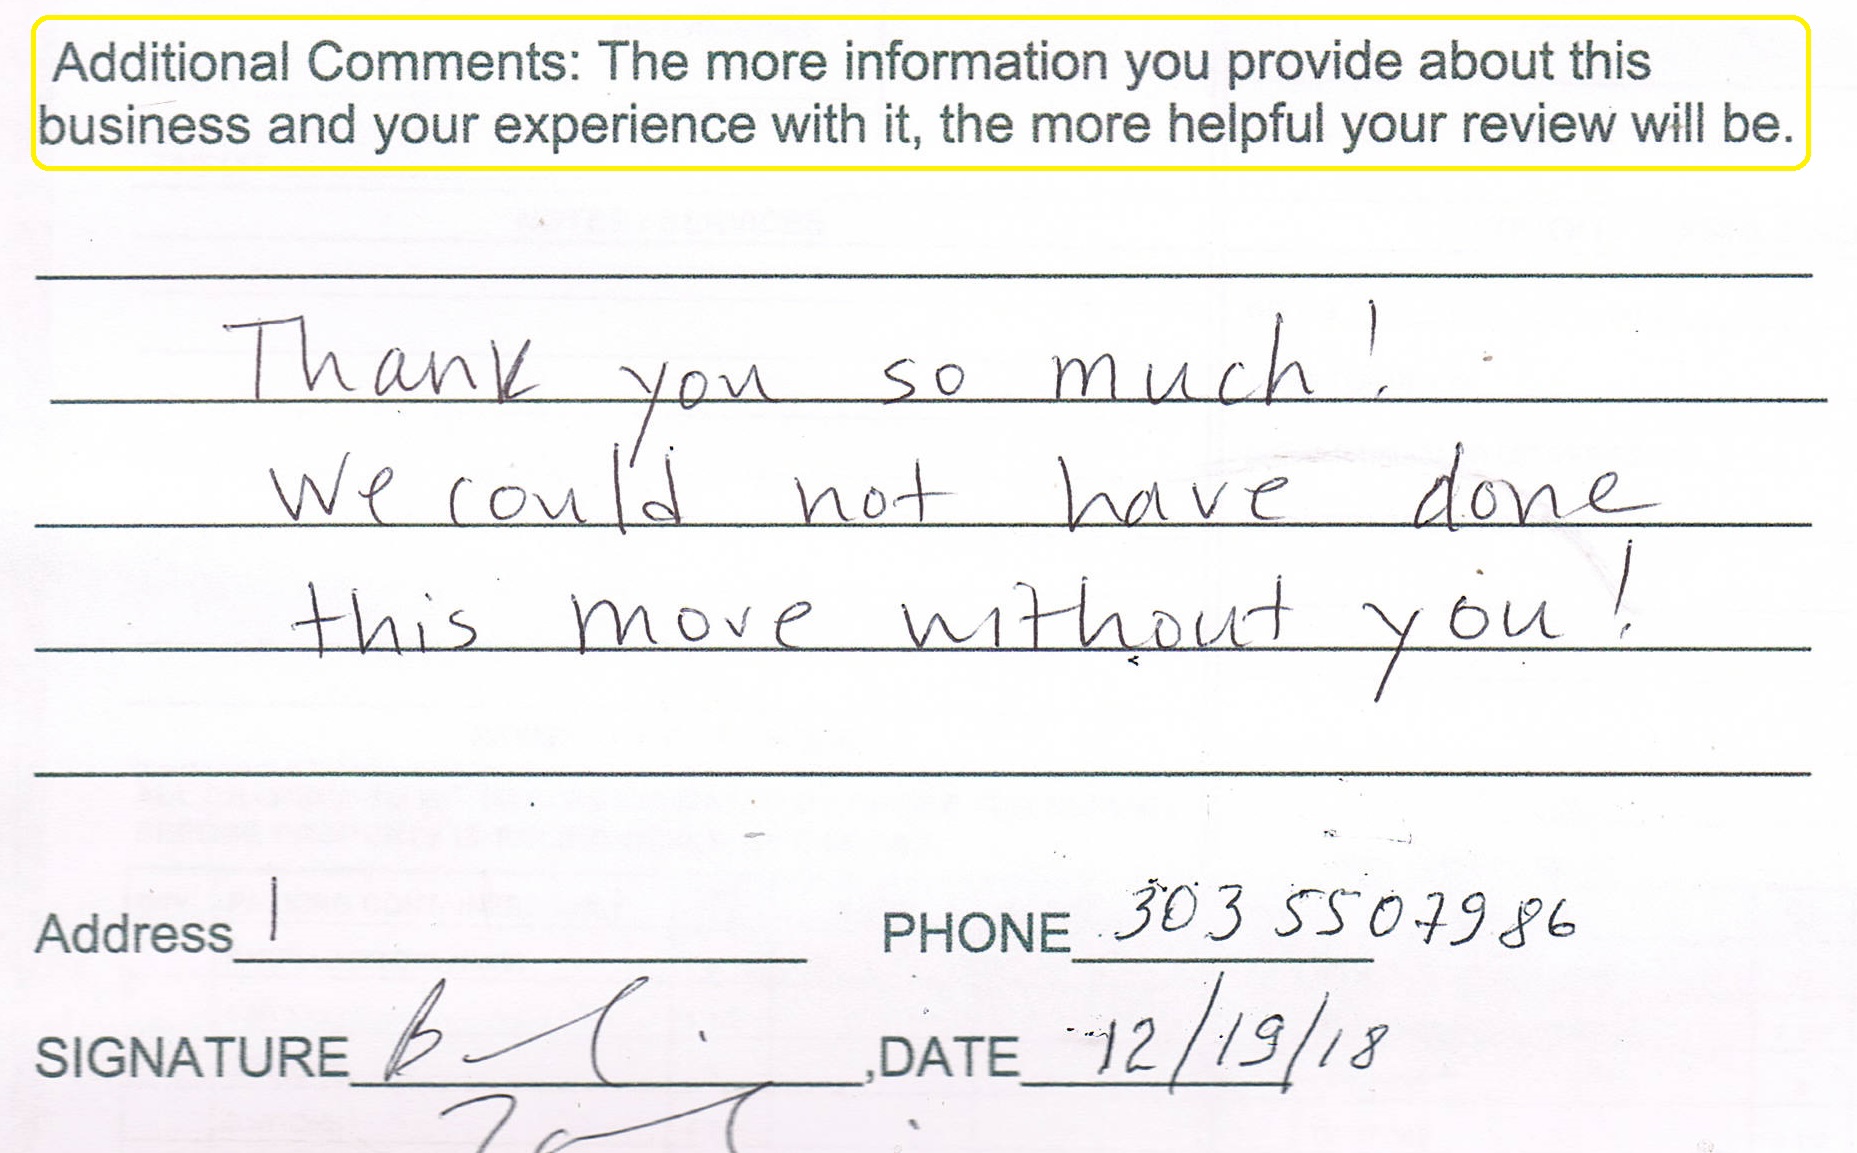 Additional Comments: The more information you provide about this
business and your experience with it, the more helpful your review will be.
Thank you so much!
We could not have done
this move without you!
Address PHONE 303 5507986
SIGNATURE ,DATE 12/19/18